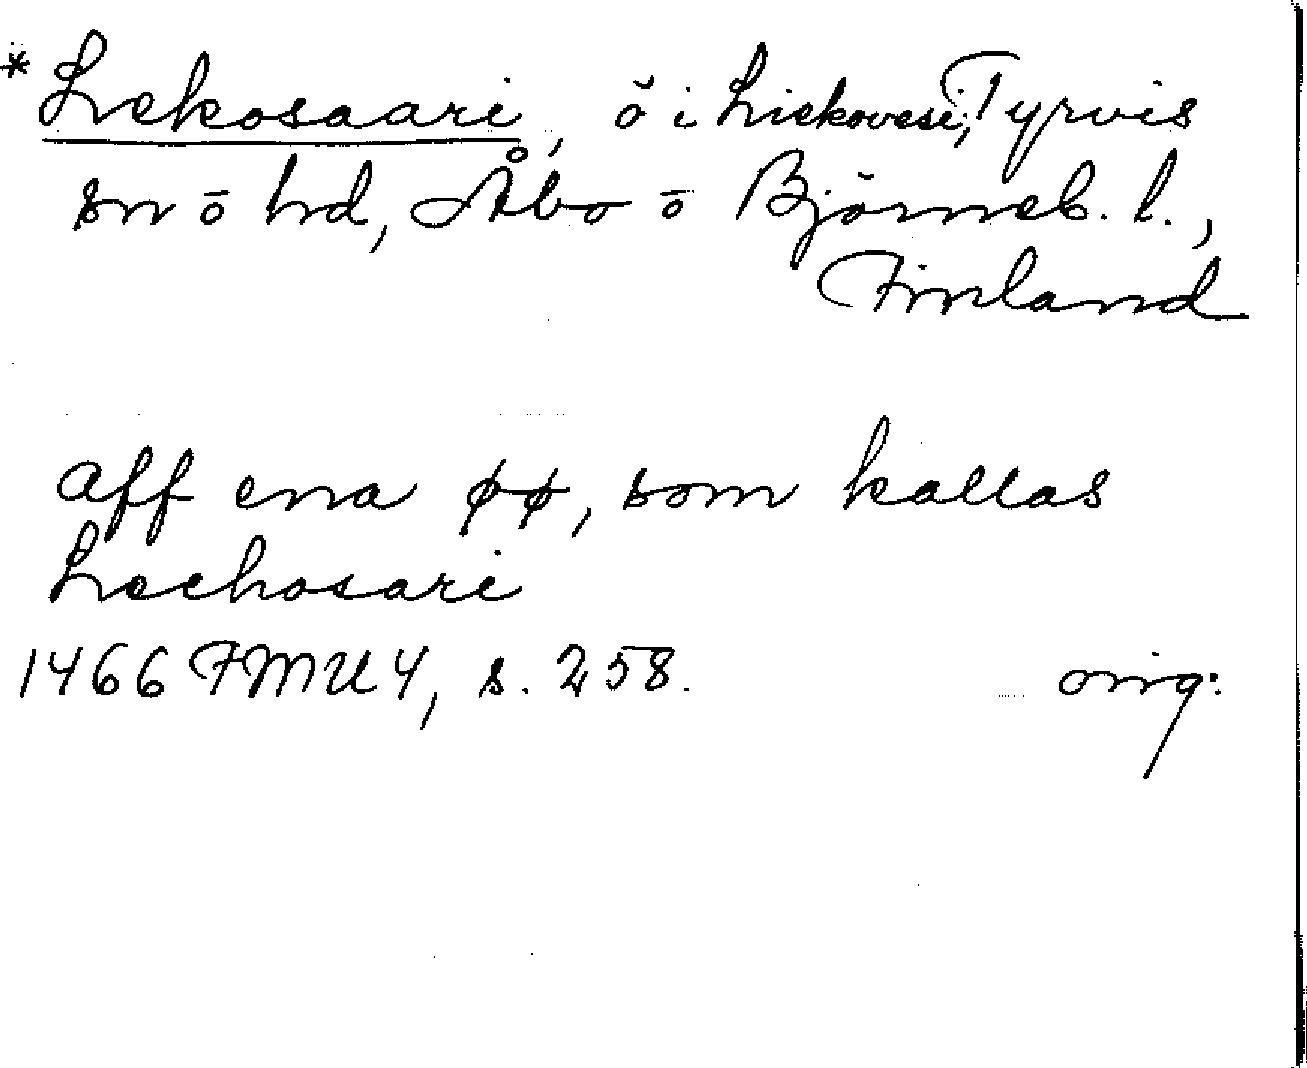 * Lekosaari, ö i Liekovesi, Tyrvis
sn o hd, Åbo o Björneb. l.,
Finland
aff ena øø, som kallas
Lechosari
1466 FMU 4, s. 258. orig: